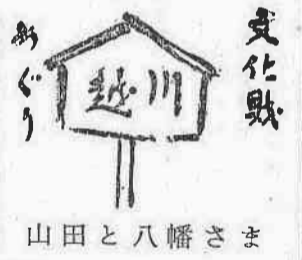 文化財
川越
めぐり
山田と八幡さま